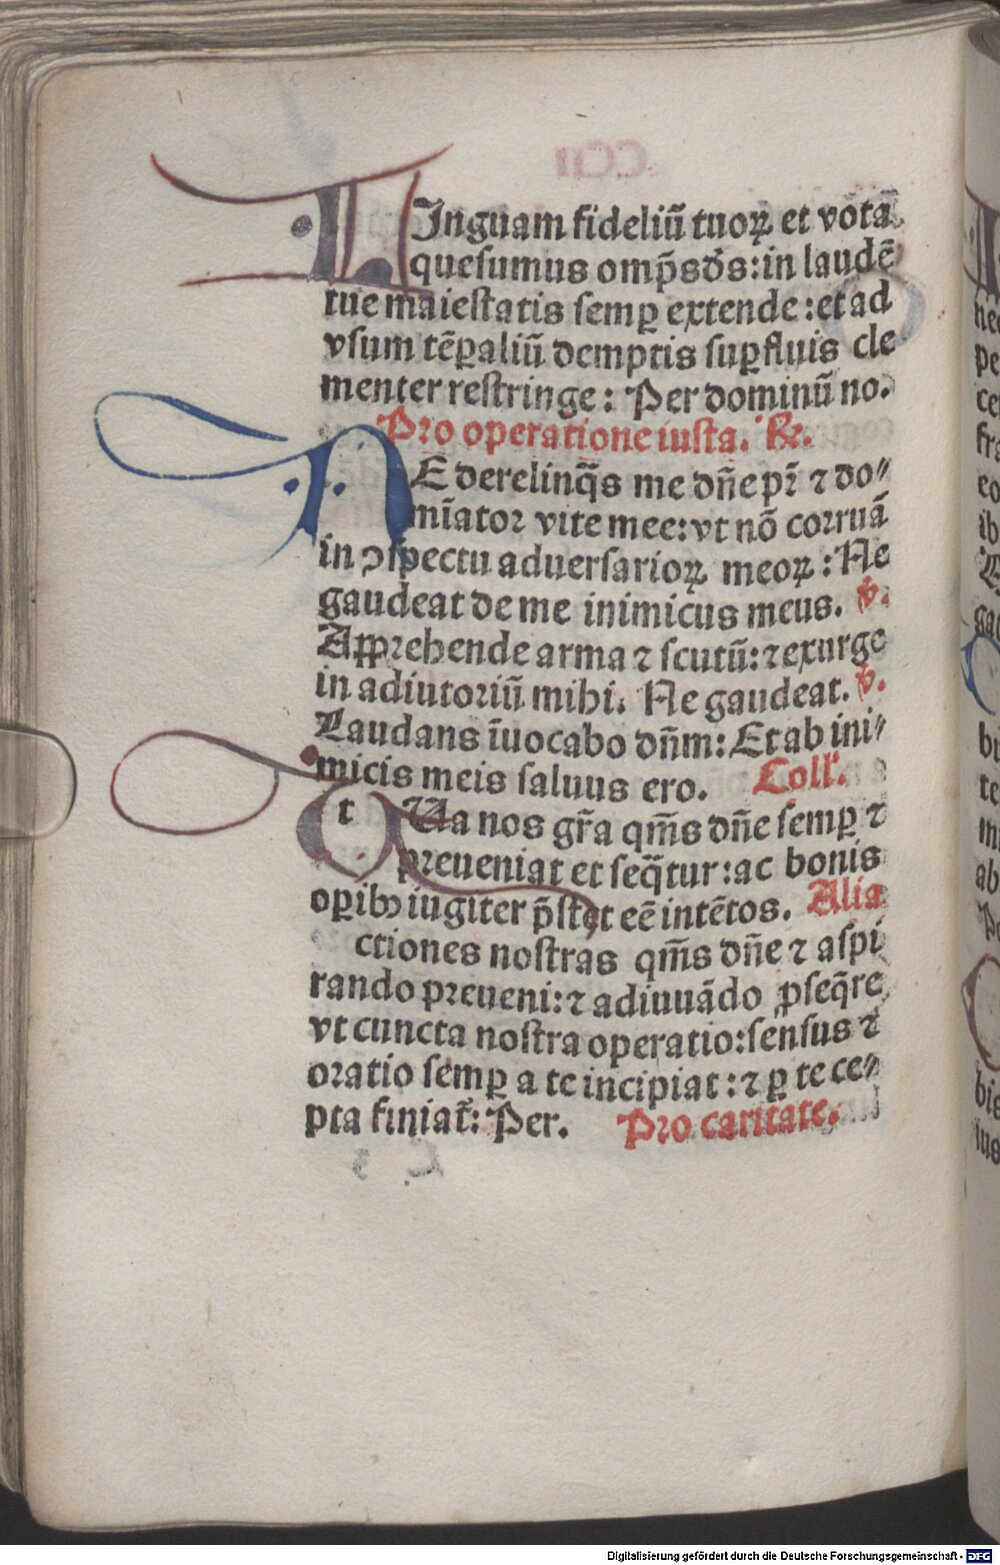 LInguam fideliū tuoꝝ et vota
quesumus omp̄s ds̄: in laudē
tue maiestatis semꝑ extende: et ad
vsum tēꝑaliū demptis suꝑfluis cle
menter restringe: Per dominū no.
Pro operatione iusta. ℞.
NE derelinq̄s me dn̄e pr̄ ⁊ do⸗
mīator vite mee: vt nō corruā
in ꝯspectu aduersarioꝝ meoꝝ: Ne
gaudeat de me inimicus meus. ℣.
Apprehende arma ⁊ scutū: ⁊ exurge
in adiutoriū mihi. Ne gaudeat. ℣.
Laudans īuocabo dn̄m: Et ab ini⸗
micis meis saluus ero. Coll'.
TUa nos gr̄a qm̄s dn̄e semꝑ ⁊
preueniat et seq̄tur: ac bonis
oꝑibꝫ iugiter p̄stet eē intētos. Alia
ctiones nostras qm̄s dn̄e ⁊ aspi
rando preueni: ⁊ adiuuādo ꝓseq̄re
vt cuncta nostra operatio: sensus ⁊
oratio semꝑ a te incipiat: ⁊ ꝑ te ce⸗
pta finiat̄: Per. Pro caritate.
Digitalisierung gefördert durch die Deutsche Forschungsgemeinschaft - DFG